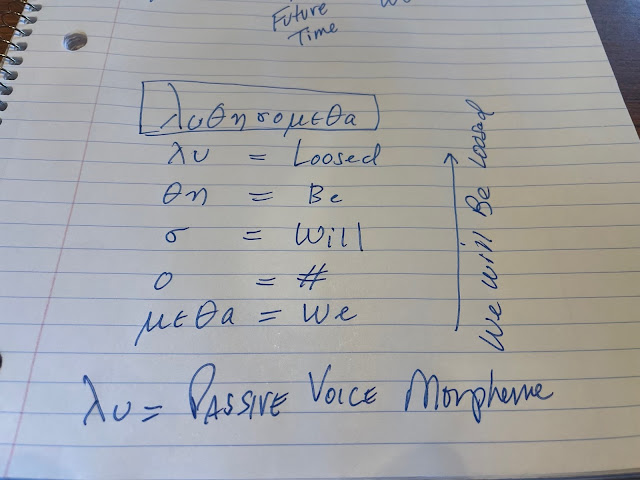 Future
Time
λυθησομεθα
λυ = Loosed
θη = Be
σ = Will
ο = #
μεθα = We
We will Be Loosed
λυ = PASSIVE VOICE Morpheme